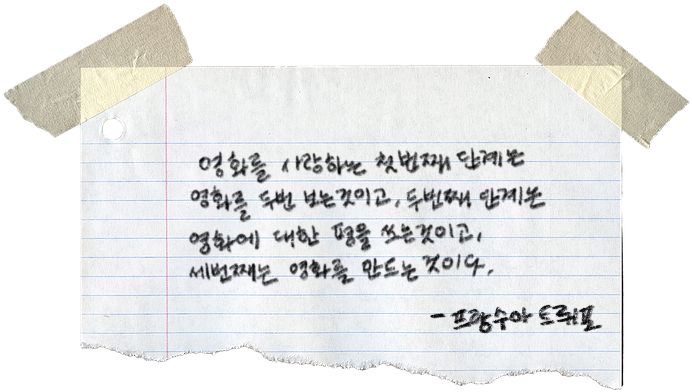 영화를 사랑하는 첫번째 단계는
영화를 두번 보는것이고, 두번째 단계는
영화에 대한 평을 쓰는것이고,
세번째는 영화를 만드는 것이다.
- 프랑수아 트뤼포